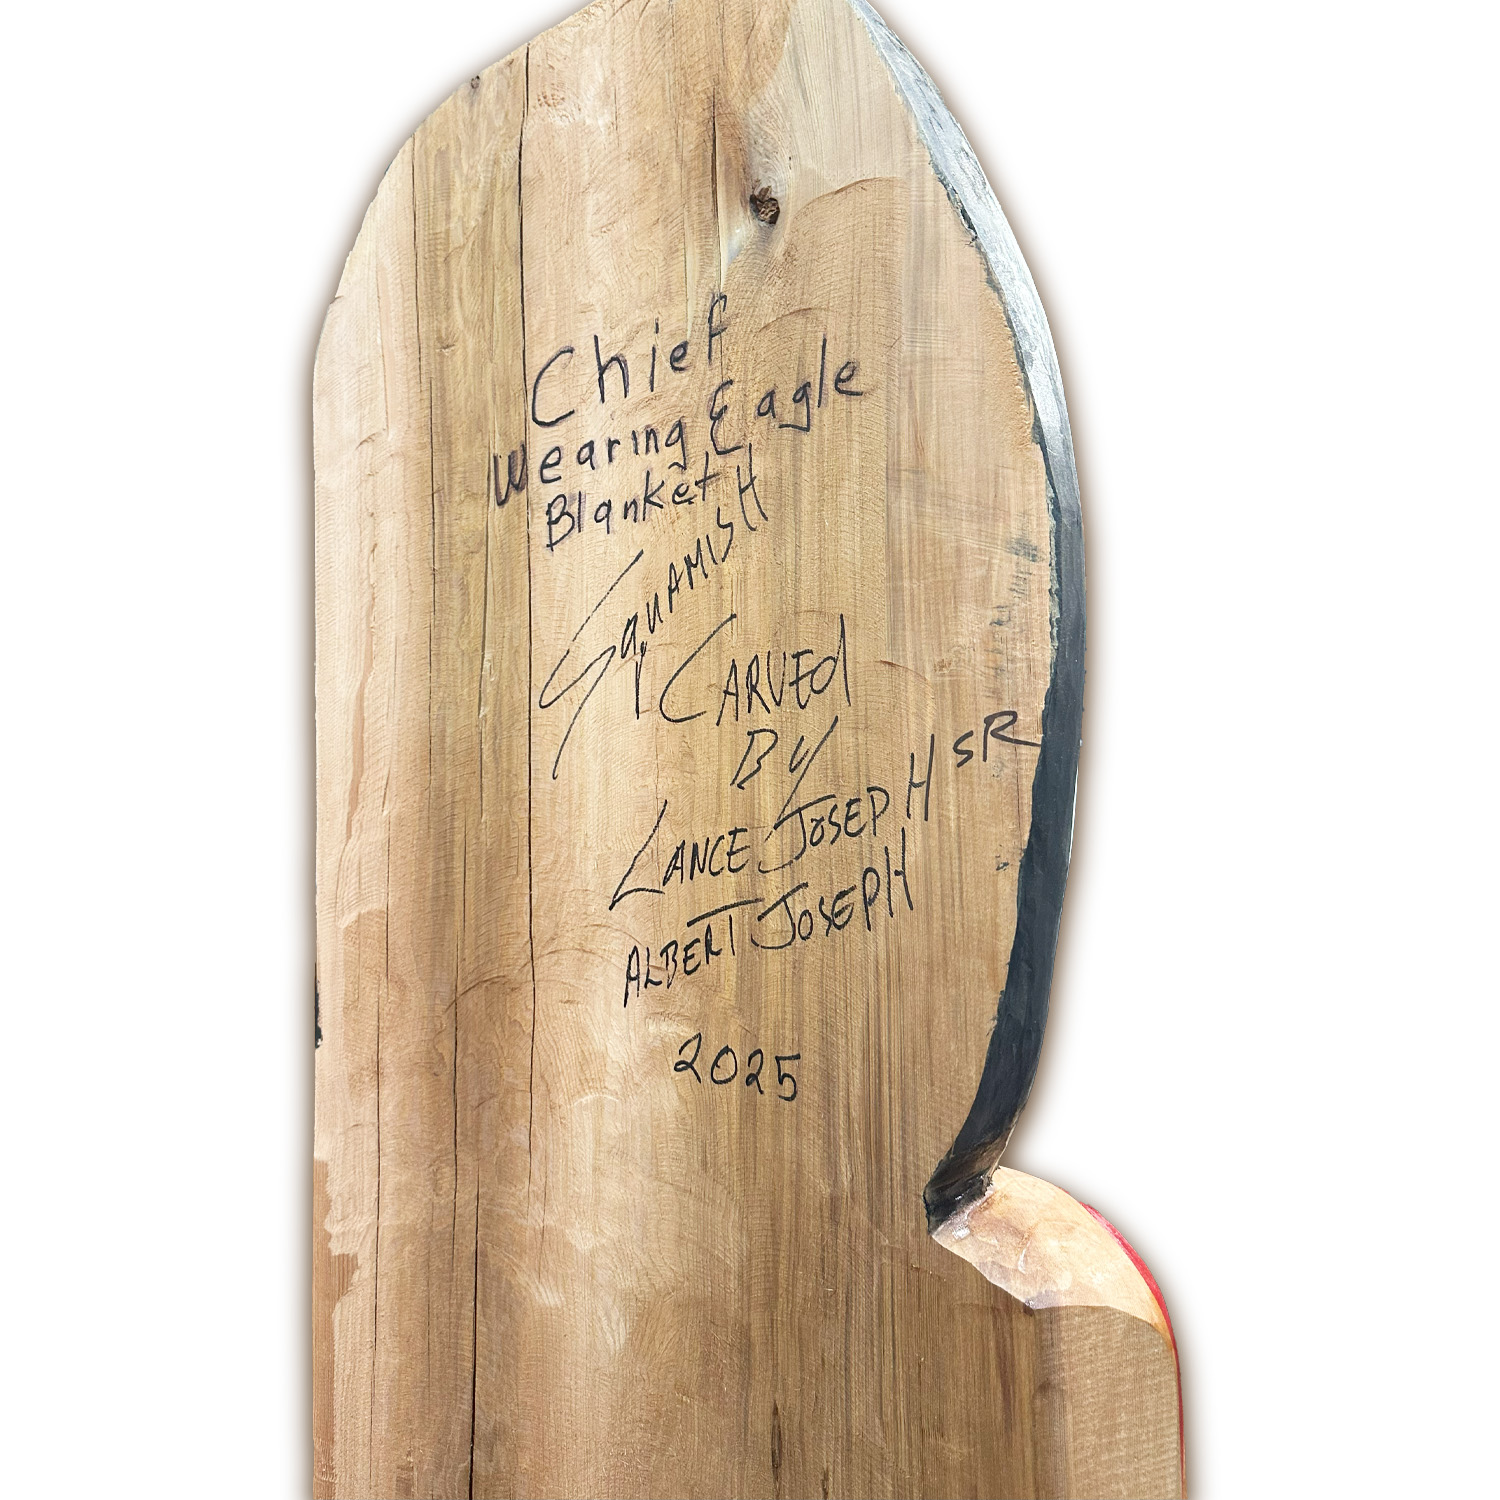 Chief
Wearing Eagle
Blanket
SquAMISH
CARVEd
By
LANCE JOSEPH SR
ALBERT JOSEPH
2025